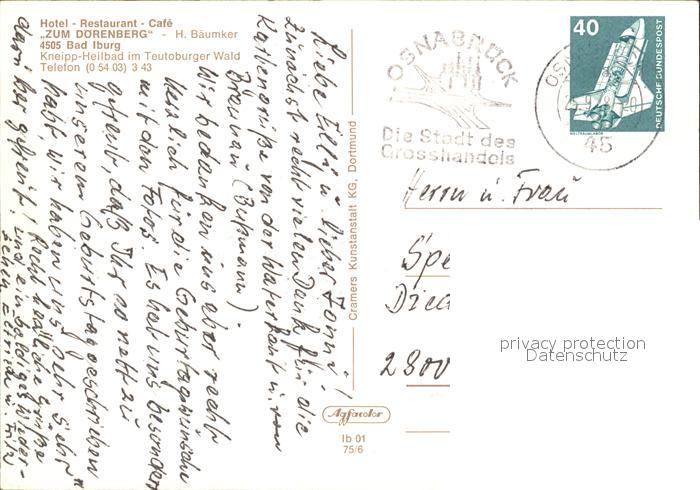 Hotel - Restaurant - Café
„ZUM DÖRENBERG" - H. Bäumker
4505 Bad Iburg
Kneipp-Heilbad im Teutoburger Wald
Telefon (0 54 03) 3 43
Liebe Elli u. lieber Tonni!
Zunächst recht vielen Dank für die
Kartengrüße von der Waterkant u. von
Braunau (Bußmann).
Wir bedanken uns aber recht
herzlich für die Geburtstagswünsche
mit den Fotos. Es hat uns besonders
gefreut, daß Ihr so nett zu
unserem Geburtstag geschrieben
habt, wir haben uns sehr, sehr
darüber gefreut! Recht herzliche Grüße
und ein baldiges Wieder-
sehen u. Fritz
Cramers Kunstanstalt KG, Dortmund
Agfacolor
Ib 01
75/6
OSNABRÜCK
Die Stadt des
Grosshandels
45
40
DEUTSCHE BUNDESPOST
WELTRAUMLABOR
Herrn u. Frau
Spe
Diec
2800
privacy protection
Datenschutz